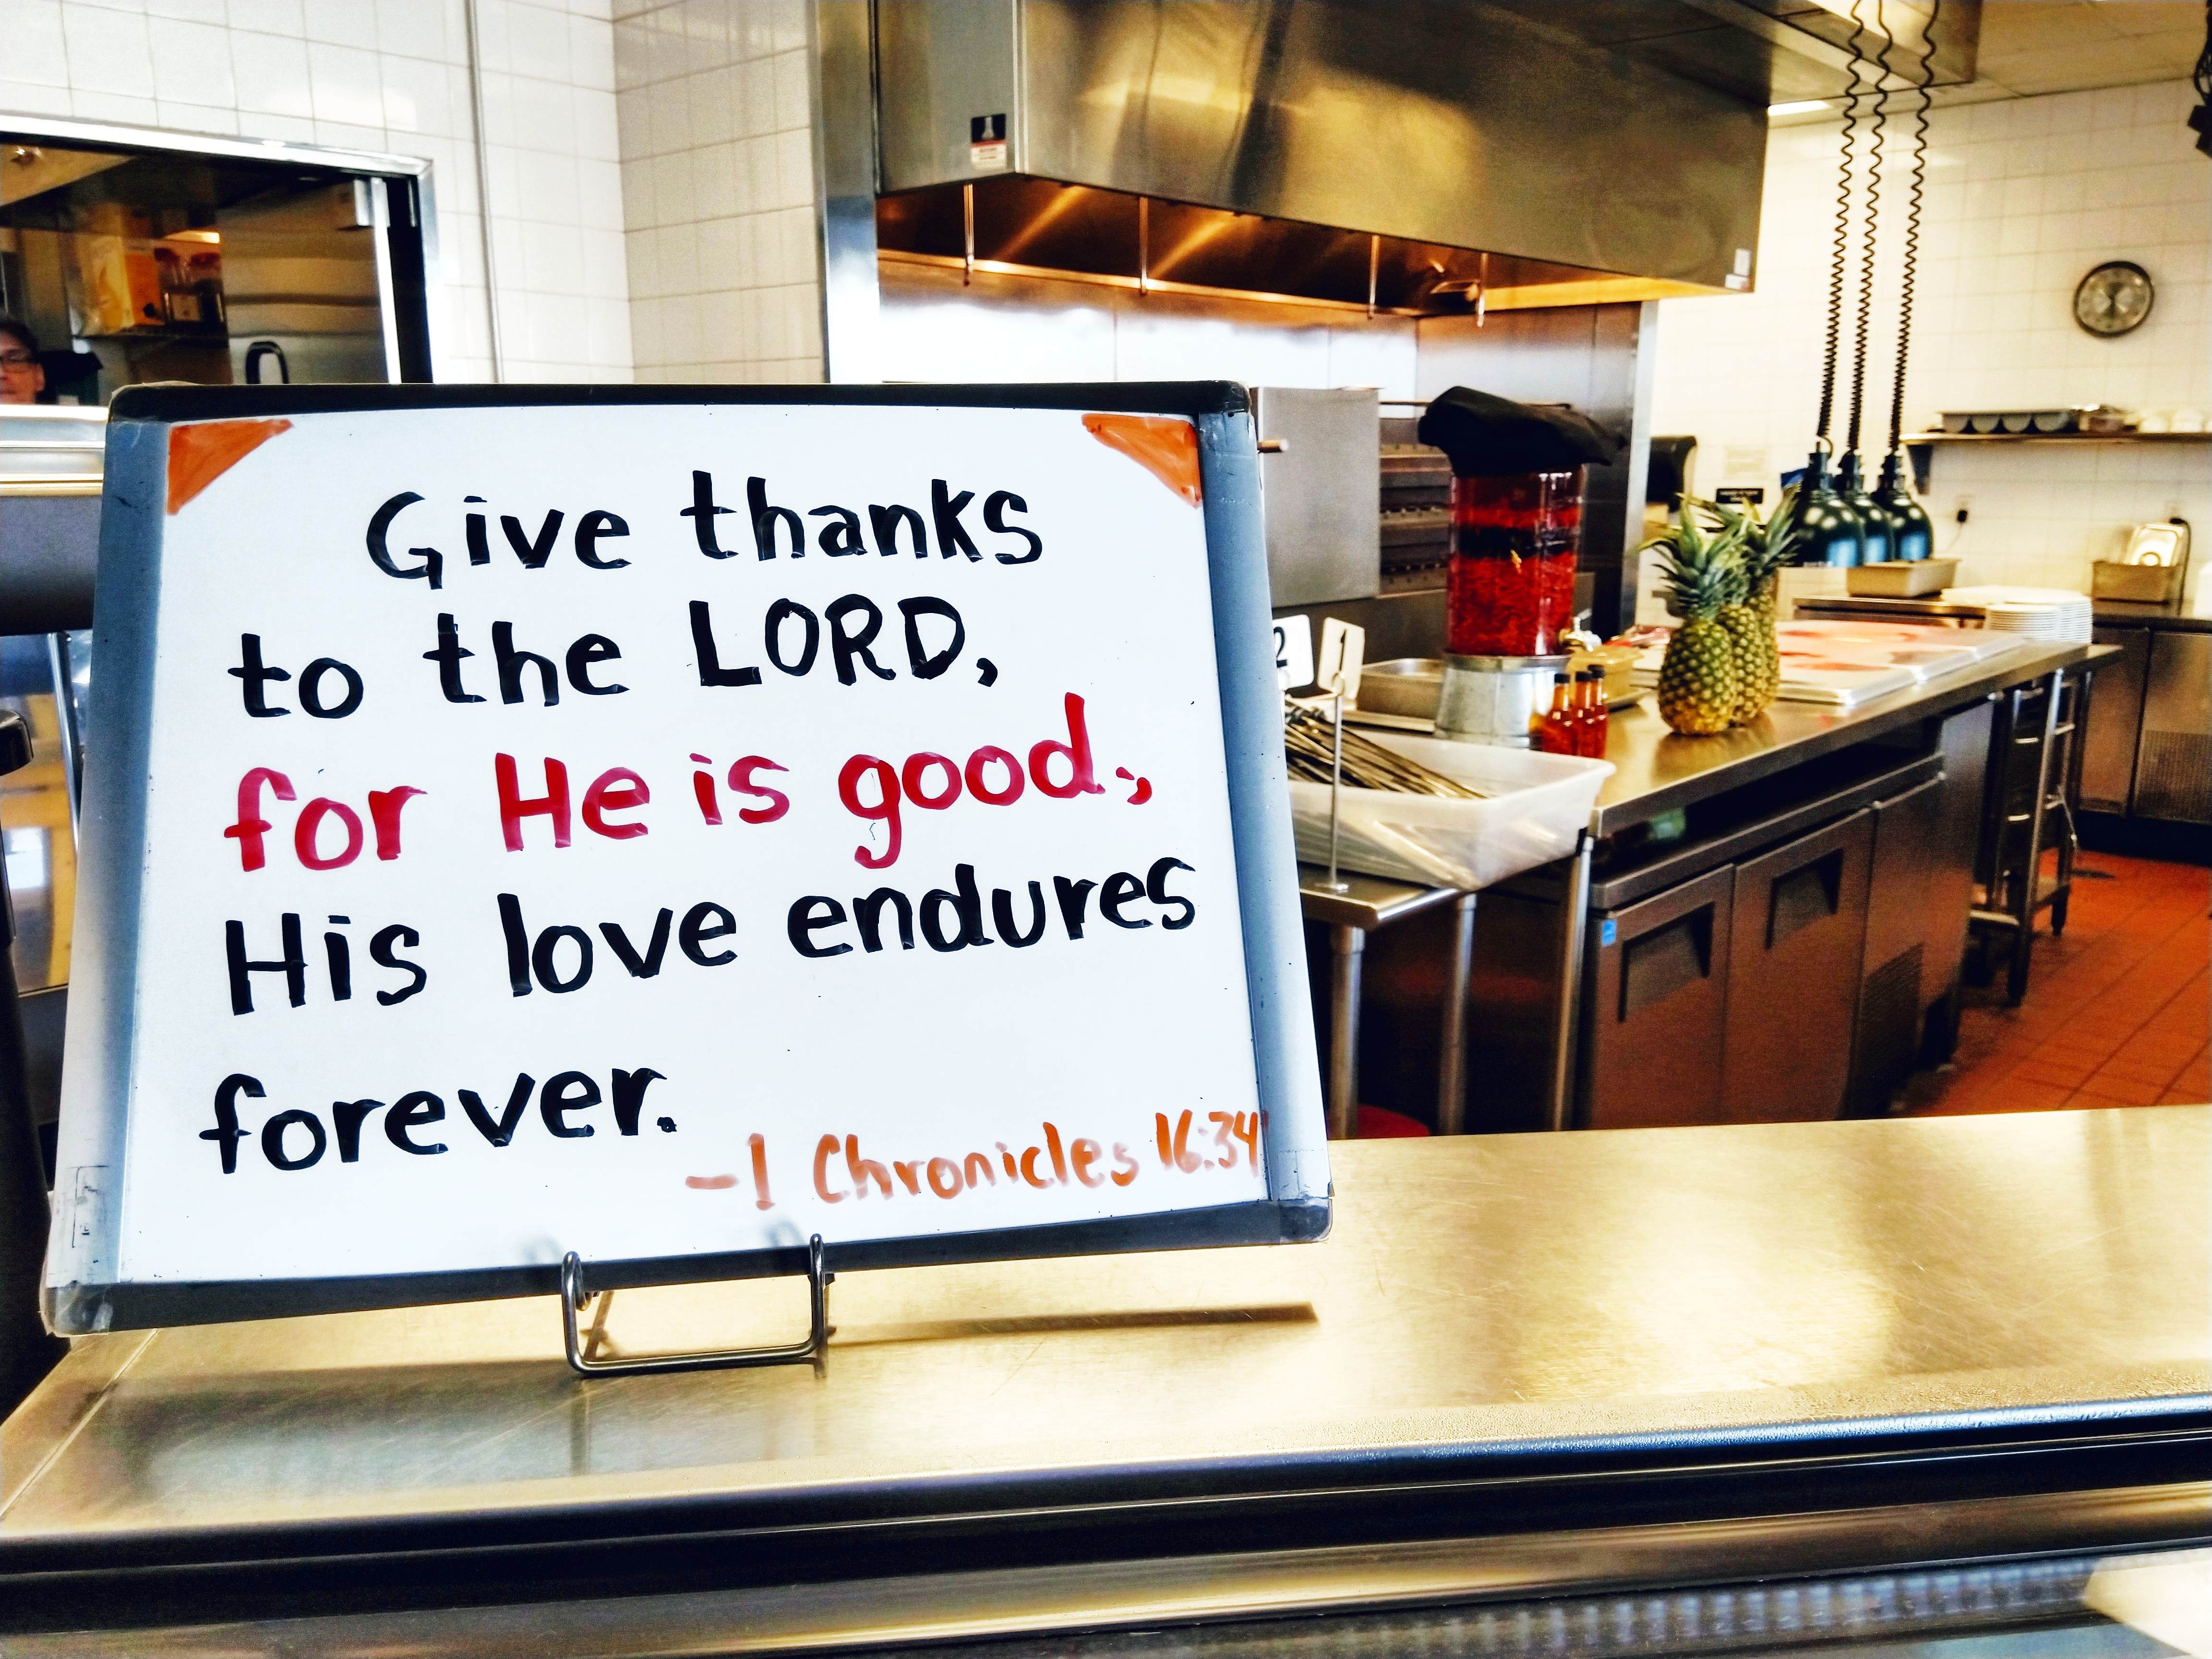 Give thanks
to the LORD,
for He is good;
His love endures
forever.
-1 Chronicles 16:34
2
1